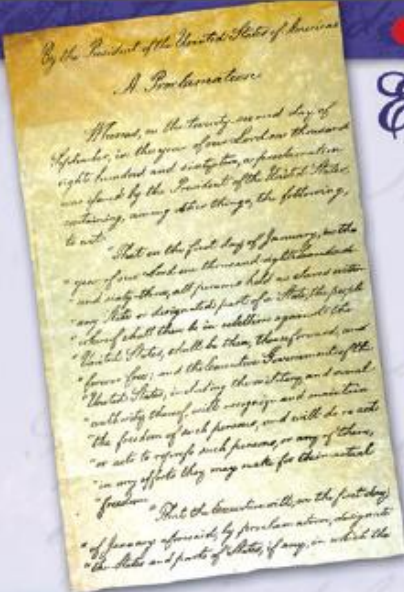 By the President of the United States of America:
A Proclamation.
Whereas, on the twenty-second day of
September, in the year of our Lord one thousand
eight hundred and sixty-two, a proclamation
was issued by the President of the United States,
containing, among other things, the following,
to wit:
"That on the first day of January, in the
"year of our Lord one thousand eight hundred
"and sixty-three, all persons held as slaves within
"any State or designated part of a State, the people
"whereof shall then be in rebellion against the
"United States, shall be then, thenceforward, and
"forever free; and the Executive Government of the
"United States, including the military and naval
"authority thereof, will recognize and maintain
"the freedom of such persons, and will do no act
"or acts to repress such persons, or any of them,
"in any efforts they may make for their actual
"freedom.
"That the Executive will, on the first day
"of January aforesaid, by proclamation, designate
"the States and parts of States, if any, in which the
E